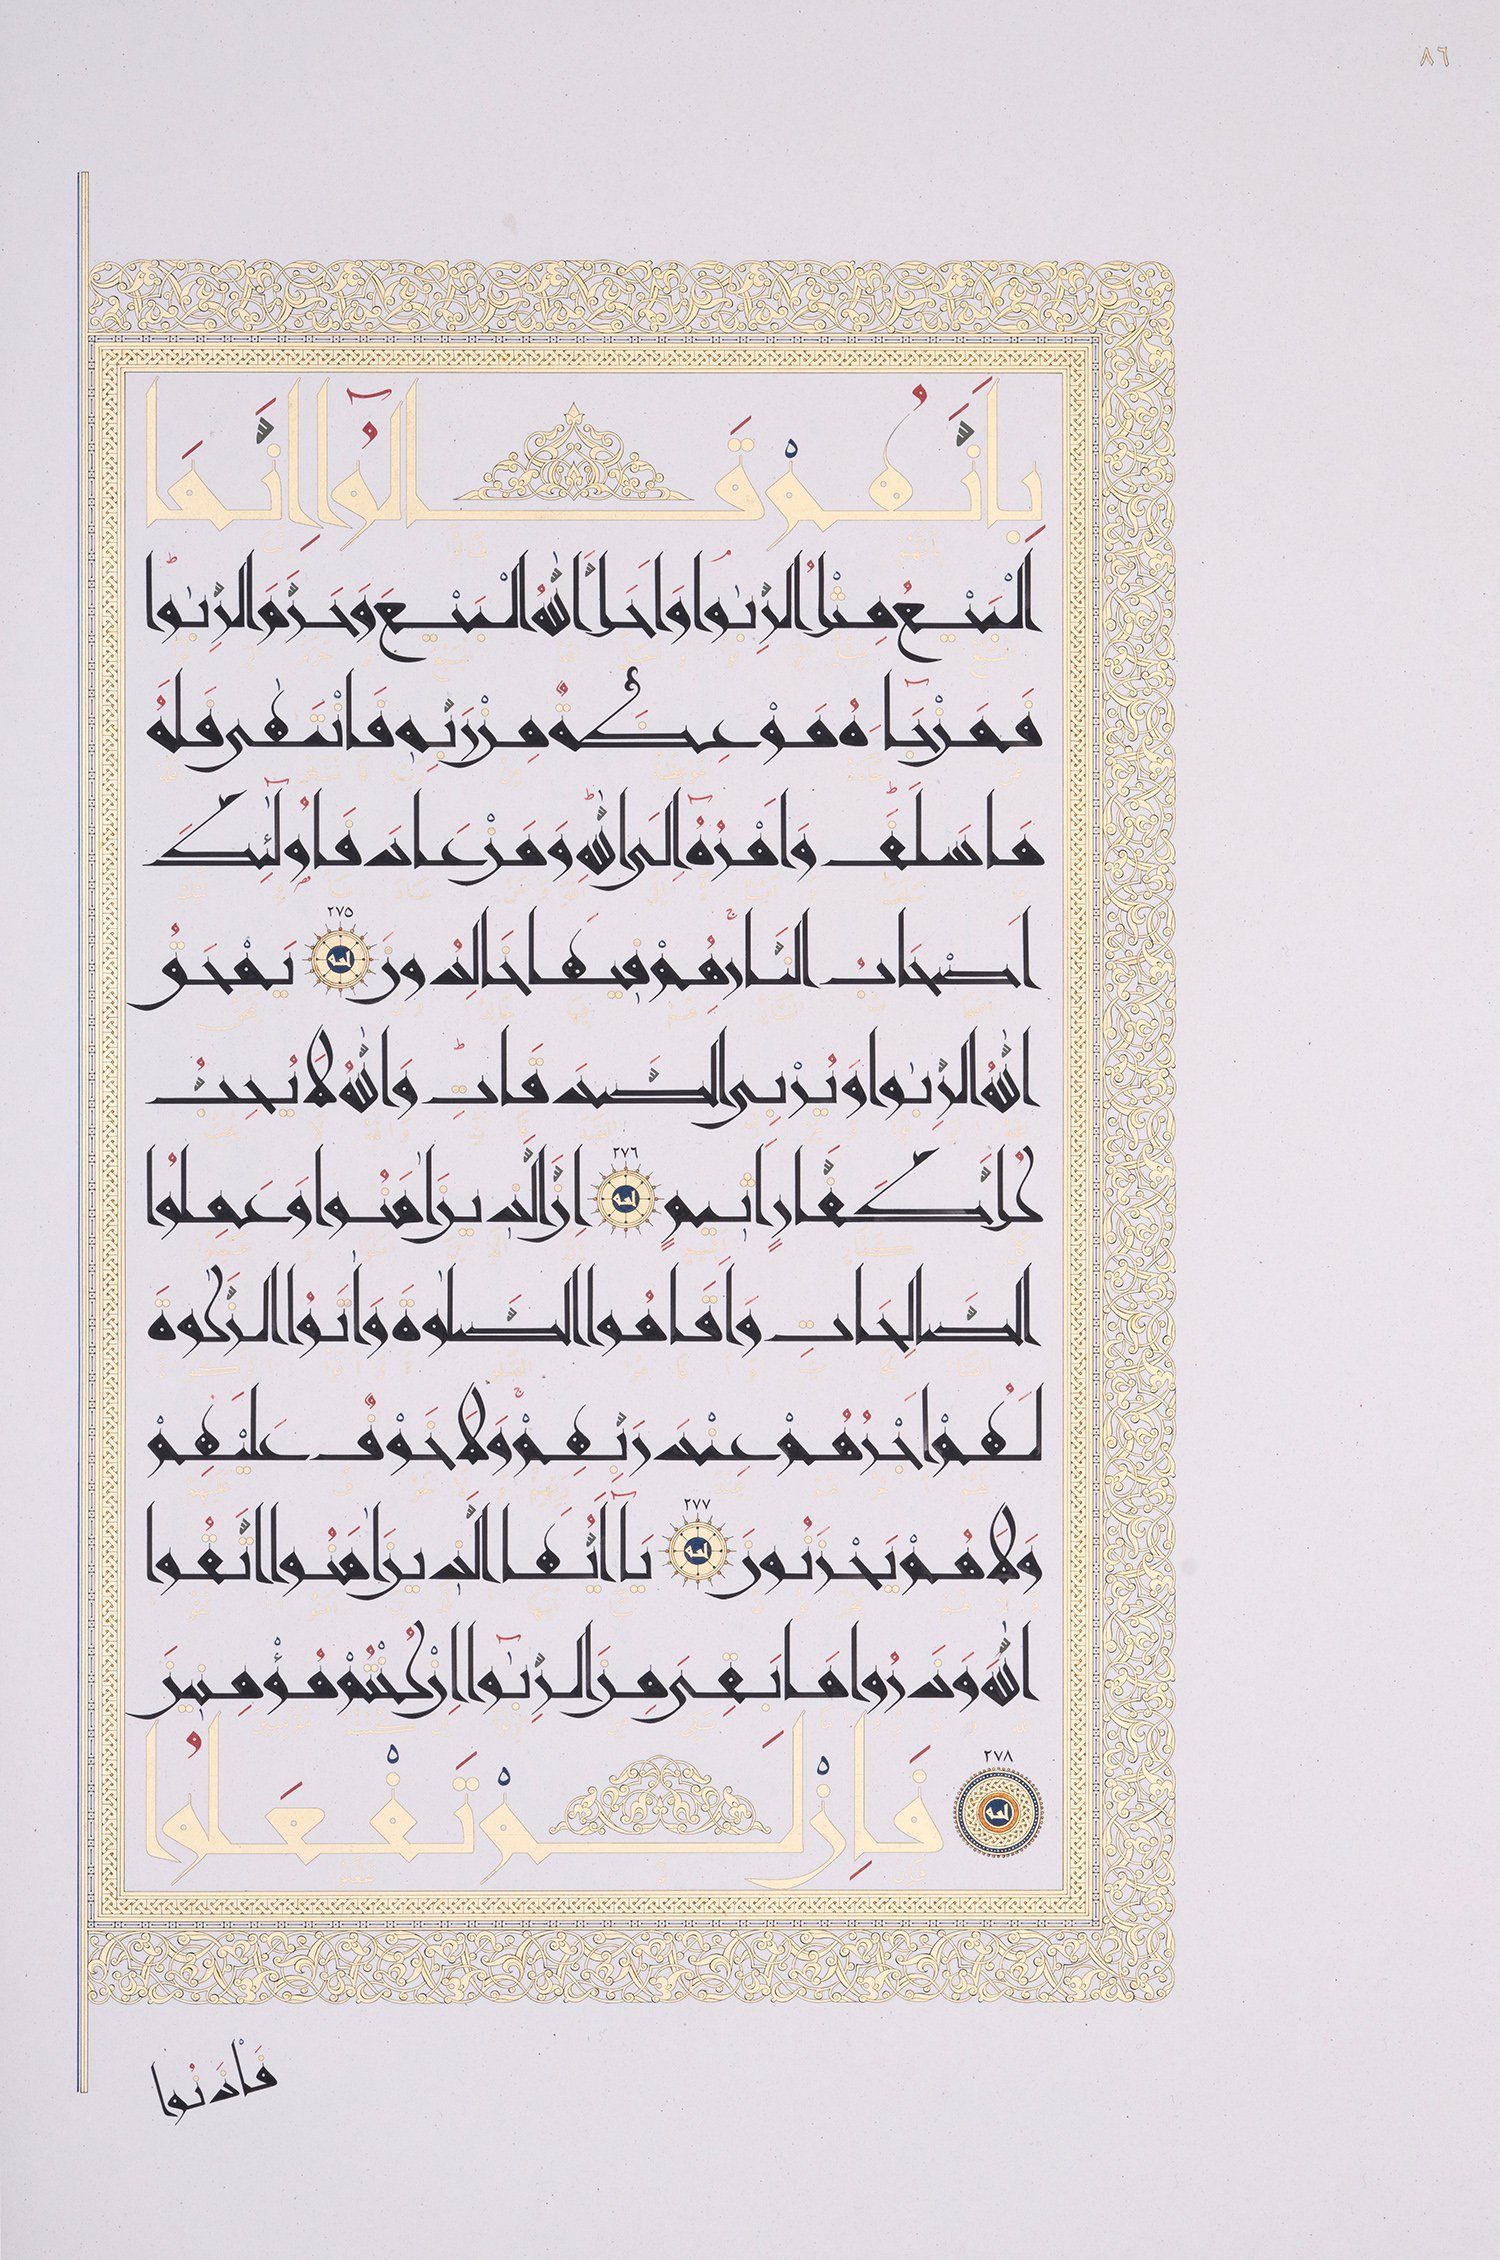 ٨٦
بِأَنَّهُمْ قَالُوا إِنَّمَا
الْبَيْعُ مِثْلُ الرِّبٰوا وَأَحَلَّ اللّٰهُ الْبَيْعَ وَحَرَّمَ الرِّبٰوا
فَمَنْ جَاءَهُ مَوْعِظَةٌ مِنْ رَبِّهِ فَانْتَهٰى فَلَهُ
مَا سَلَفَ وَأَمْرُهُ إِلَى اللّٰهِ وَمَنْ عَادَ فَأُولٰئِكَ
أَصْحَابُ النَّارِ هُمْ فِيهَا خَالِدُونَ ٢٧٥ يَمْحَقُ
اللّٰهُ الرِّبٰوا وَيُرْبِي الصَّدَقَاتِ وَاللّٰهُ لَا يُحِبُّ
كُلَّ كَفَّارٍ أَثِيمٍ ٢٧٦ إِنَّ الَّذِينَ اٰمَنُوا وَعَمِلُوا
الصَّالِحَاتِ وَأَقَامُوا الصَّلٰوةَ وَاٰتَوُا الزَّكٰوةَ
لَهُمْ أَجْرُهُمْ عِنْدَ رَبِّهِمْ وَلَا خَوْفٌ عَلَيْهِمْ
وَلَا هُمْ يَحْزَنُونَ ٢٧٧ يَا أَيُّهَا الَّذِينَ اٰمَنُوا اتَّقُوا
اللّٰهَ وَذَرُوا مَا بَقِيَ مِنَ الرِّبٰوا إِنْ كُنْتُمْ مُؤْمِنِينَ
٢٧٨ فَإِنْ لَمْ تَفْعَلُوا
فَأْذَنُوا